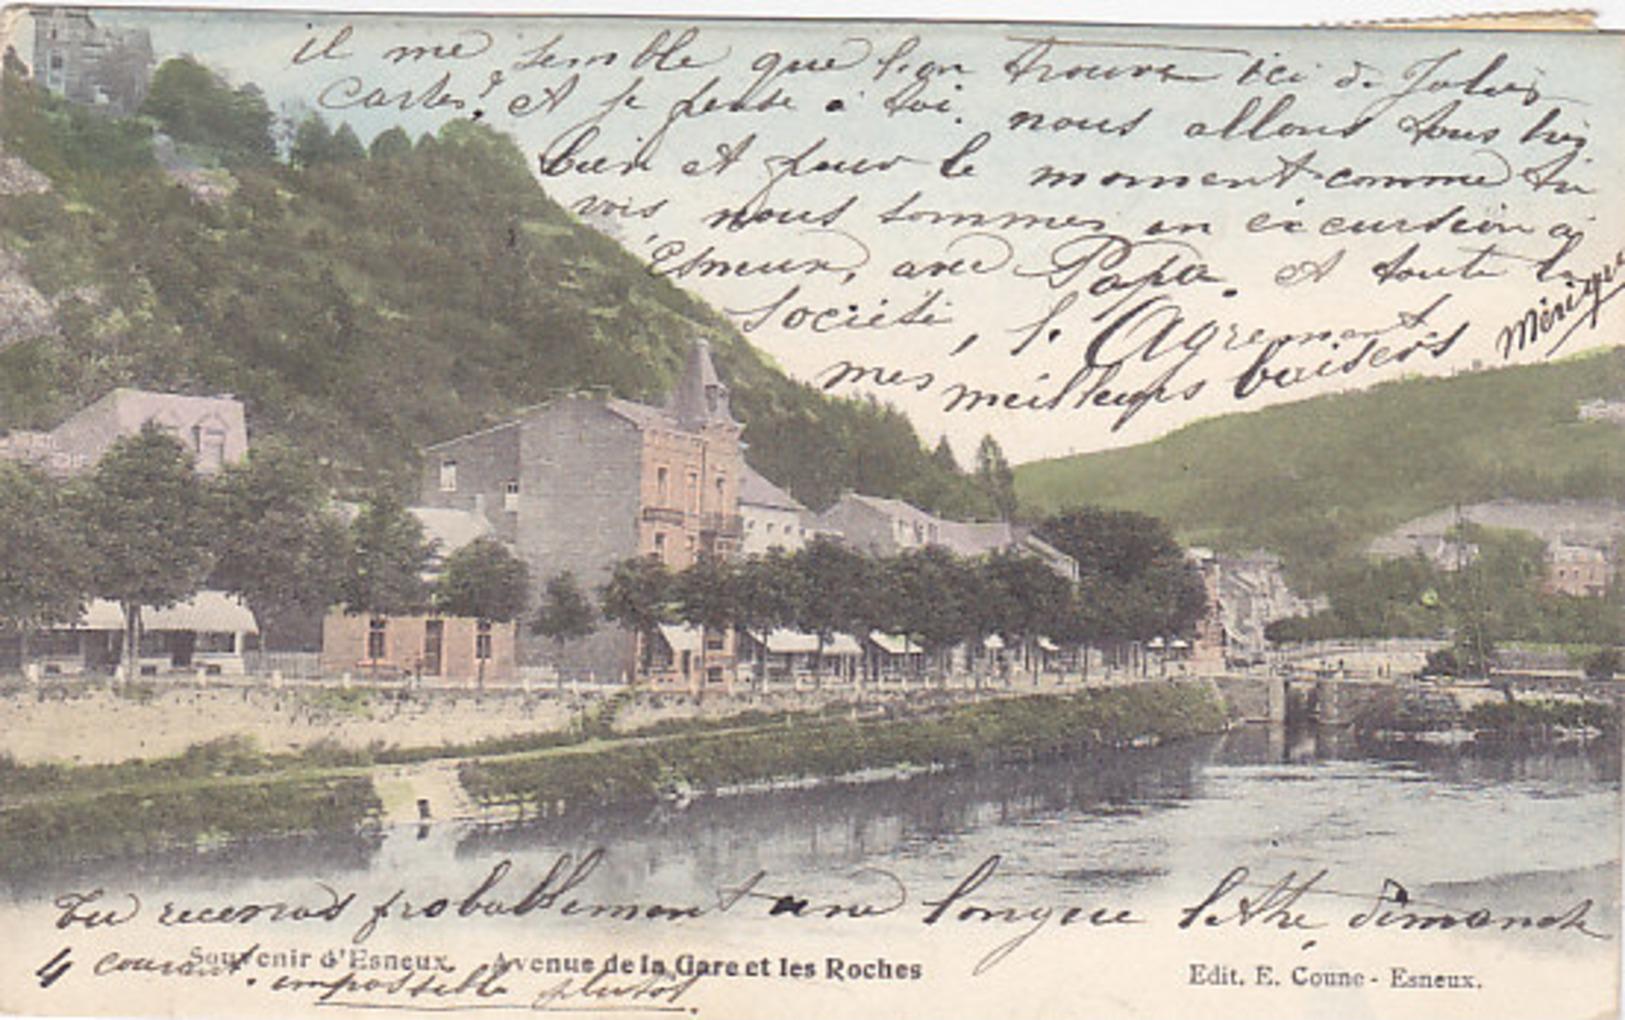 il me semble que l'on trouve ici de Jolies
cartes? et je pense à toi. nous allons tous très
bien et pour le moment comme tu
vois, nous sommes en excursion à
Esneux, avec Papa. et toute la
société, l'Agrement
mes meilleurs baisers
Tu recevras probablement une longue lettre dimanche
4 courant. impossible plutôt.
Souvenir d'Esneux. Avenue de la Gare et les Roches
Edit. E. Coune - Esneux.